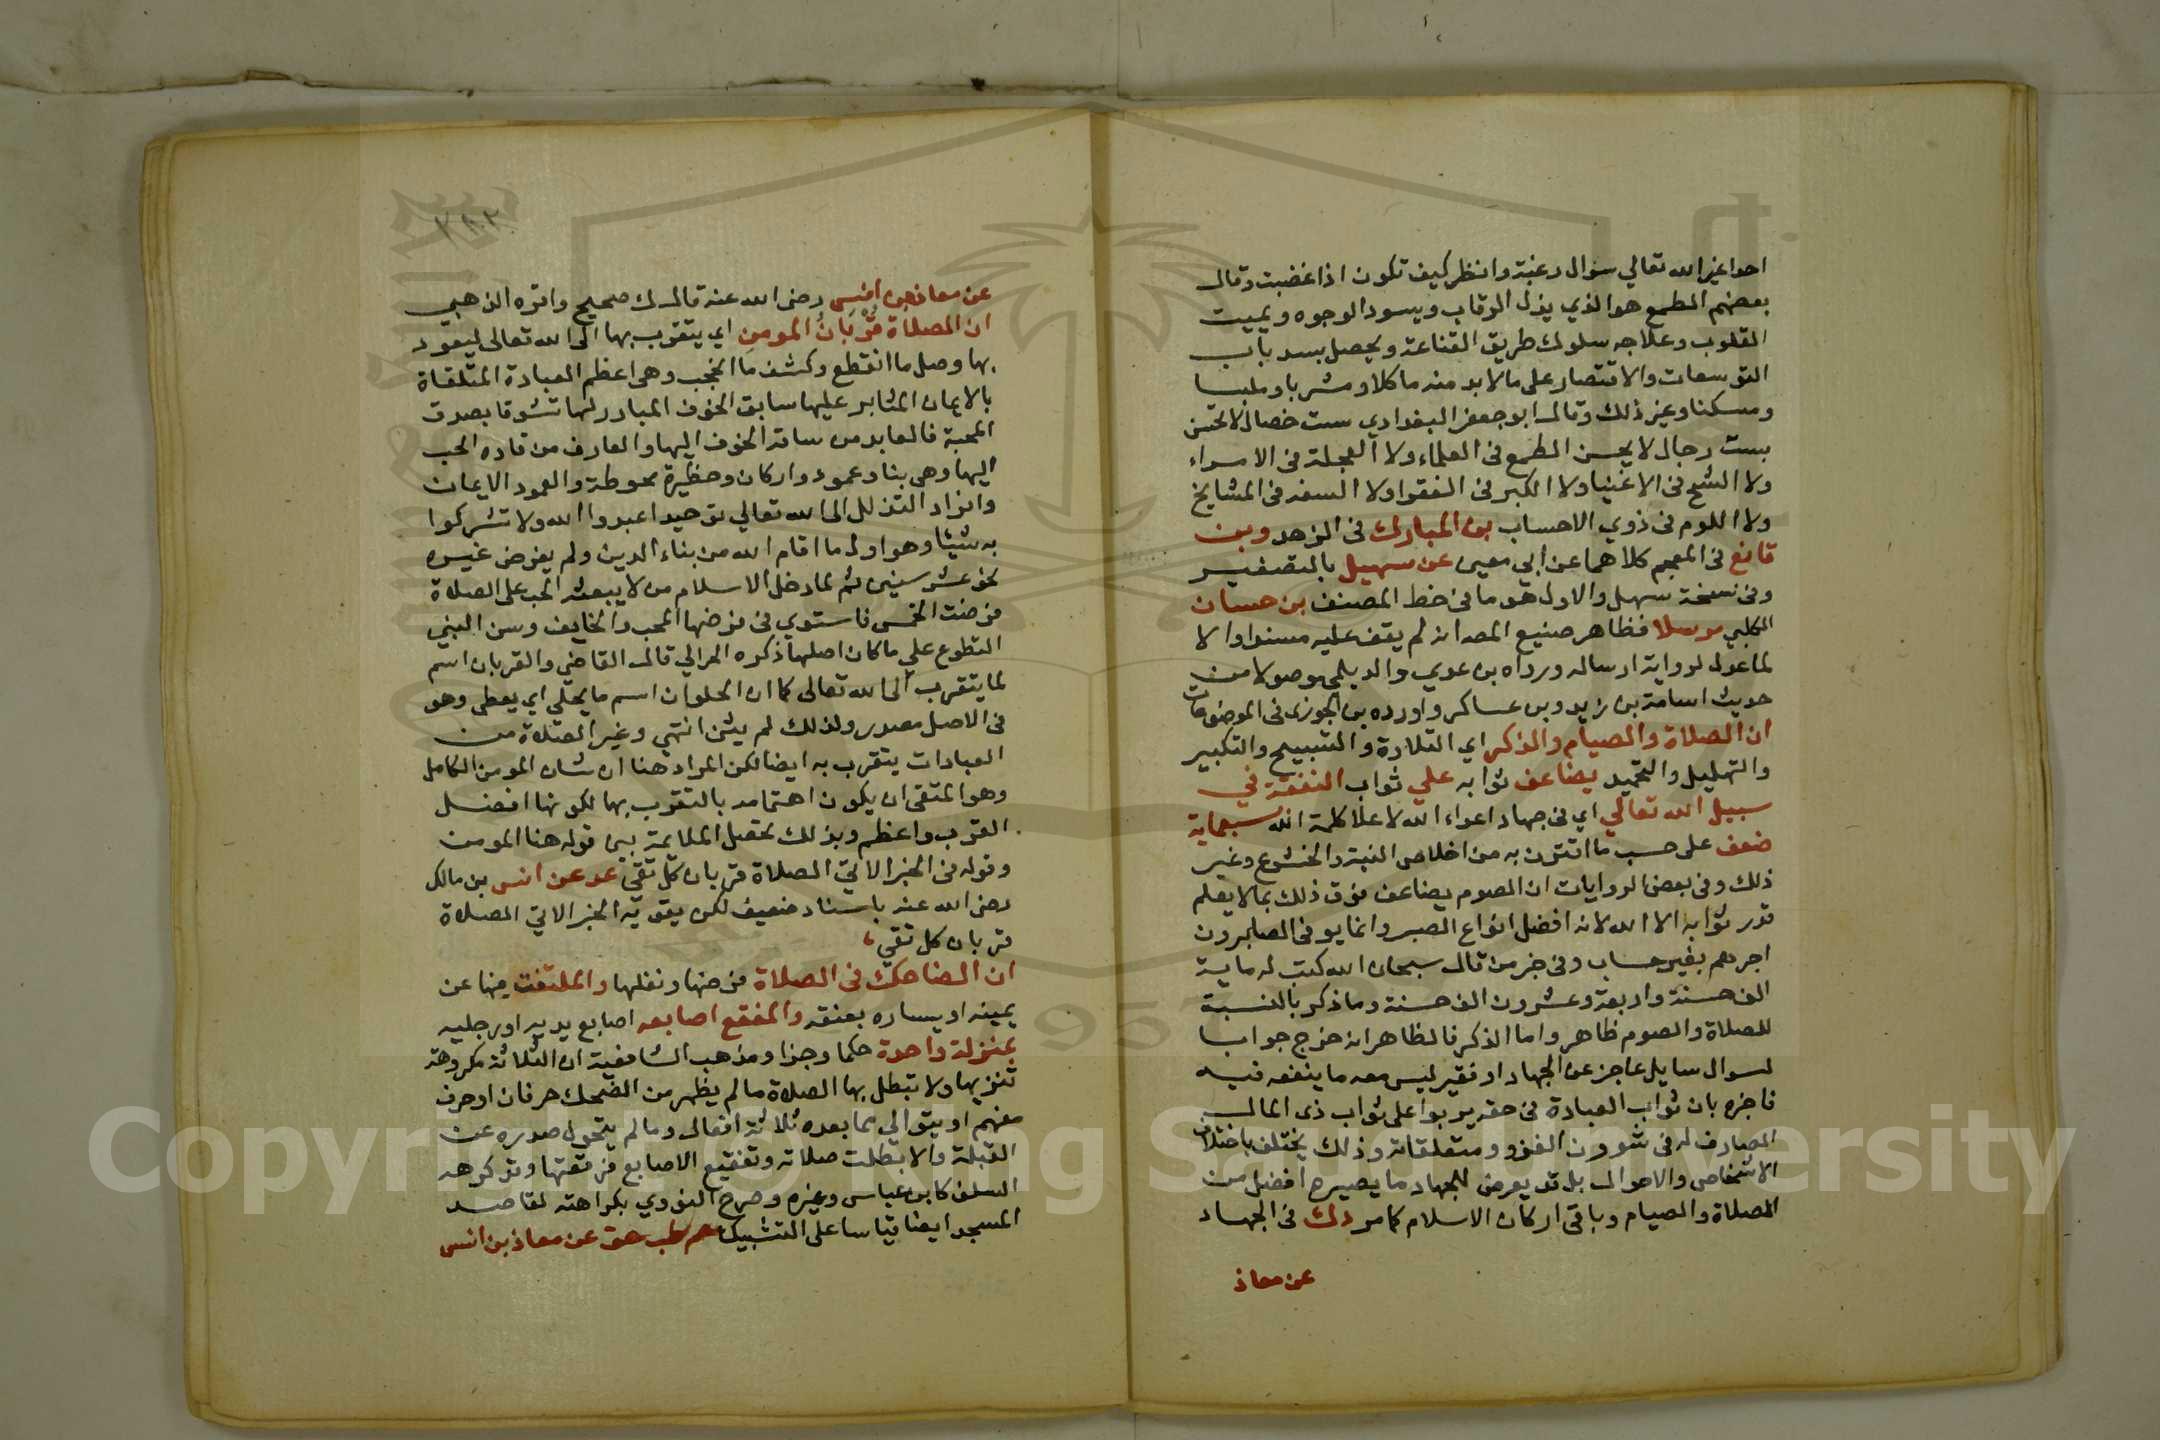 احدا غير الله تعالي سؤال رغبة وانظر كيف تكون اذا غضبت وقال
بعضهم الطمع هو الذي يذل الرقاب ويسود الوجوه ويميت
القلوب وعلاجه سلوك طريق القناعة ويحصل بسد باب
التوسعات والاقتصار على ما لا بد منه ماكلا ومشربا وملبسا
ومسكنا وغير ذلك وقال ابو جعفر البغدادي ست خصال لا تحسن
بست رجال لا يحسن الطمع في العلماء ولا العجلة في الامراء
ولا الشح في الاغنيا ولا الكبر في الفقرا ولا السفه في المشايخ
ولا اللوم في ذوي الاحساب بن المبارك في الزهد وبن
قانع في المعجم كلاهما عن ابي معين عن سهيل بالتصغير
وفي نسخة سهل والاول هو ما في خط المصنف بن حسان
الكلبي مرسلا فظاهر صنيع المصه انه لم يقف عليه مسندا والا
لما عدل لرواية ارساله ورواه بن عدي والديلمي موصولا من
حديث اسامة بن زيد وبن عساكر واورده بن الجوزي في الموضوعات
ان الصلاة والصيام والذكر اي التلاوة والتسبيح والتكبير
والتهليل والتحميد يضاعف ثوابه علي ثواب النفقة في
سبيل الله تعالي اي في جهاد اعداء الله لاعلا كلمة الله سبعماية
ضعف على حسب ما اقترن به من اخلاص النية والخشوع وغير
ذلك وفي بعض الروايات ان الصوم يضاعف فوق ذلك بما لا يعلم
قدر ثوابه الا الله لانه افضل انواع الصبر وانما يوفى الصابرون
اجرهم بغير حساب وفي خبر من قال سبحان الله كتب له ماية
الف حسنة واربعة وعشرون الف حسنة وما ذكر بالنسبة
للصلاة والصوم ظاهر واما الذكر فالظاهر انه خرج جوابا
لسوال سايل عاجز عن الجهاد او فقير ليس معه ما ينفعه فيه
فاخبره بان ثواب العبادة في حقه يربوا على ثواب ذي المال
الصادف له في شوون الغزو ومتعلقاته وذلك يختلف باختلاف
الاشخاص والاحوال بل قد يعرض للجهاد ما يصيره افضل من
الصلاة والصيام وباقي اركان الاسلام كما مر دك في الجهاد
عن معاذ
٢٨٢
عن معاذ بن انس رضي الله عنه قال ك صحيح واقره الذهبي
ان الصلاة قربان المومن اي يتقرب بها الى الله تعالى ليعود
بها وصل ما انقطع وكشف ما انحجب وهي اعظم العبادة المتلقاة
بالايمان المثابر عليها سابق الخوف المبادر لها تشوقا بصدق
المحبة فالعابد من ساقه الخوف اليها والعارف من قاده الحب
اليها وهي بنا وعمود واركان وحظيرة محوطة والعمود الايمان
وافراد التذلل الى الله تعالي توحيدا اعبدوا الله ولا تشركوا
به شيئا وهو اول ما اقام الله من بناء الدين ولم يفرض غيره
نحو عشر سنين ثم لما دخل الاسلام من لا يبعثه الحب على الصلاة
فرضت الخمس فاستوي في فرضها المحب والخايف وسن النبي
التطوع علي ما كان اصلها ذكره الحرالي قال القاضي والقربان اسم
لما يتقرب الى الله تعالى كما ان الحلوان اسم ما يحلي اي يعطى وهو
في الاصل مصدر ولذلك لم يثن انتهي وغير الصلاة من
العبادات يتقرب به ايضا لكن المراد هنا ان شان المومن الكامل
وهو المتقي ان يكون اهتمامه بالتقرب بها لكونها افضل
القرب واعظم وبذلك يحصل الملايمة بين قوله هنا المومن
وقوله في الخبر الاتي الصلاة قربان كل تقي عد عن انس بن مالك
رضي الله عنه باسناد ضعيف لكن يقويه الخبر الاتي الصلاة
قربان كل تقي
ان الضاحك في الصلاة فرضها ونفلها والملتفت فيها عن
يمينه او يساره بعنقه والمفقع اصابعه اصابع يديه او رجليه
بمنزلة واحدة حكما وجزا ومذهب الشافعية ان الثلاثة مكروهة
تنزيها ولا تبطل بها الصلاة ما لم يظهر من الضحك حرفان او حرف
مفهم او يتوالى مما بعده ثلاثة افعال وما لم يتحول صدره عن
القبلة والا بطلت صلاته وتفقيع الاصابع فرقعتها وقد كرهه
السلف كابن عباس وغيره وصرح النووي بكراهته لقاصد
المسجد ايضا قياسا على التشبيك حم طب هق عن معاذ بن انس
Copyright © King Saud University